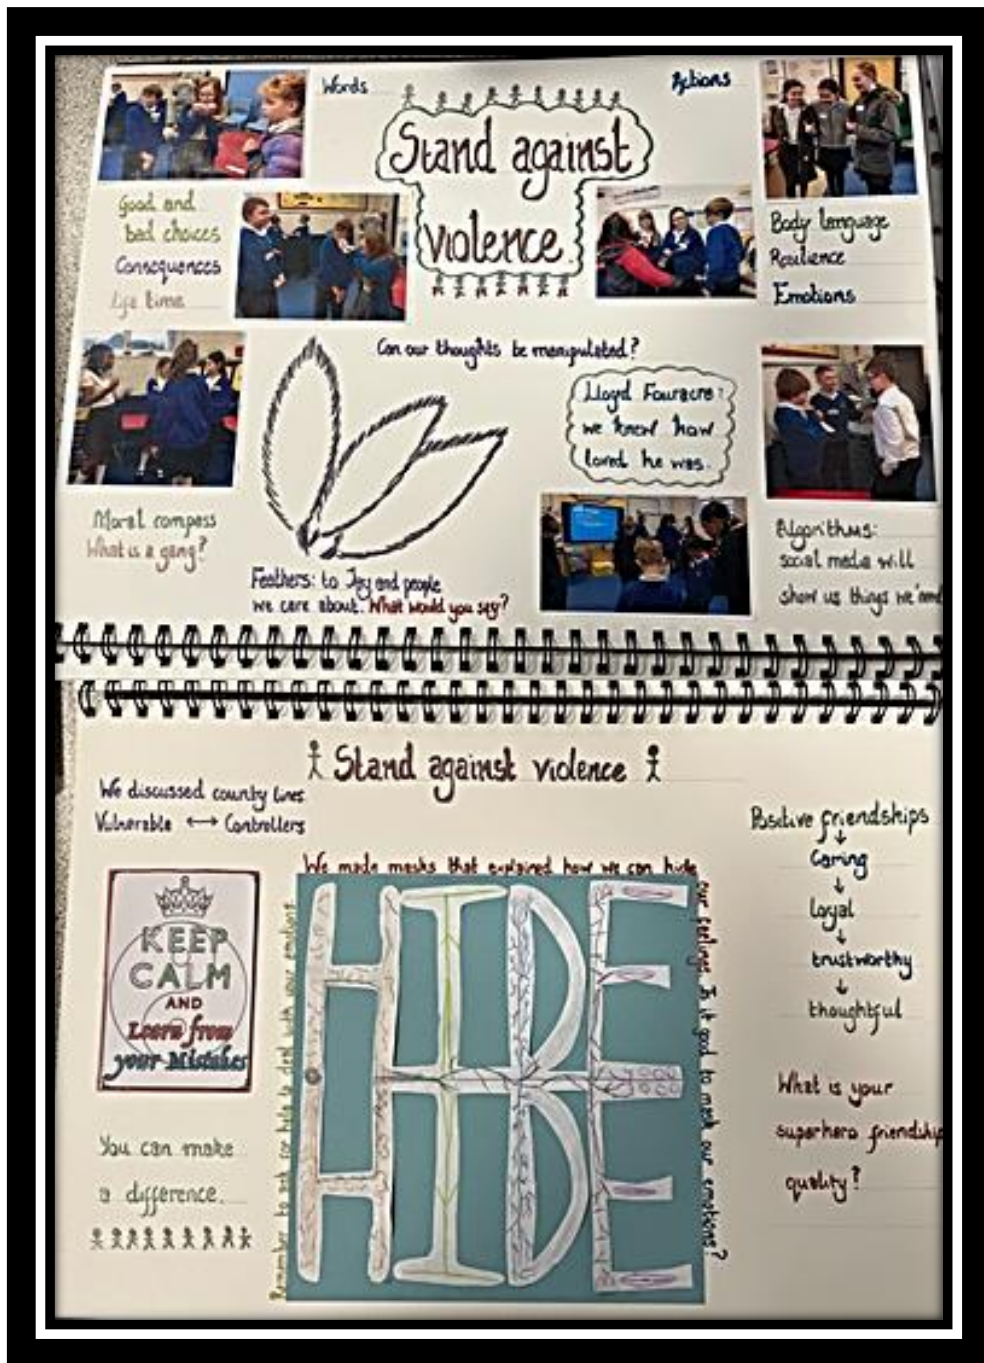 Words
Actions
Stand against
violence.
Good and
bad choices
Consequences
life time
Body language
Resilience
Emotions
Can our thoughts be manipulated?
Lloyd Fouracre:
we knew how
loved he was.
Moral compass
What is a gang?
Feathers: to Joy and people
we care about. What would you say?
Algorithms:
social media will
show us things we
Stand against violence
We discussed county lines
Vulnerable ↔ Controllers
Positive friendships
↓
Caring
↓
loyal
↓
trustworthy
↓
thoughtful
We made masks that explained how we can hide
our feelings. Is it good to mask our emotions?
Remember to ask for help to deal with your emotions
KEEP
CALM
AND
Learn from
your Mistakes
HIDE
HIDE
You can make
a difference.
What is your
superhero friendship
quality?